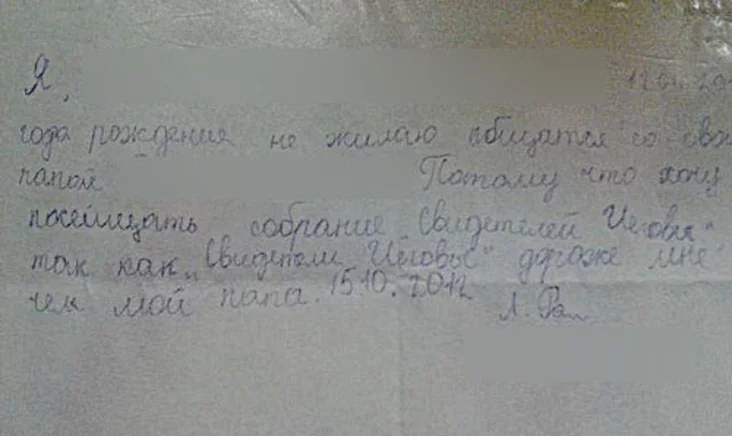 Я,
года рождения не жилаю абищатся со сво
папой Потому что хочу
посейищать собрание „Свидетелей Иеговы"
так как „Свидетели Иеговы" дороже мне
чем мой папа. 15.10.2012
Л.